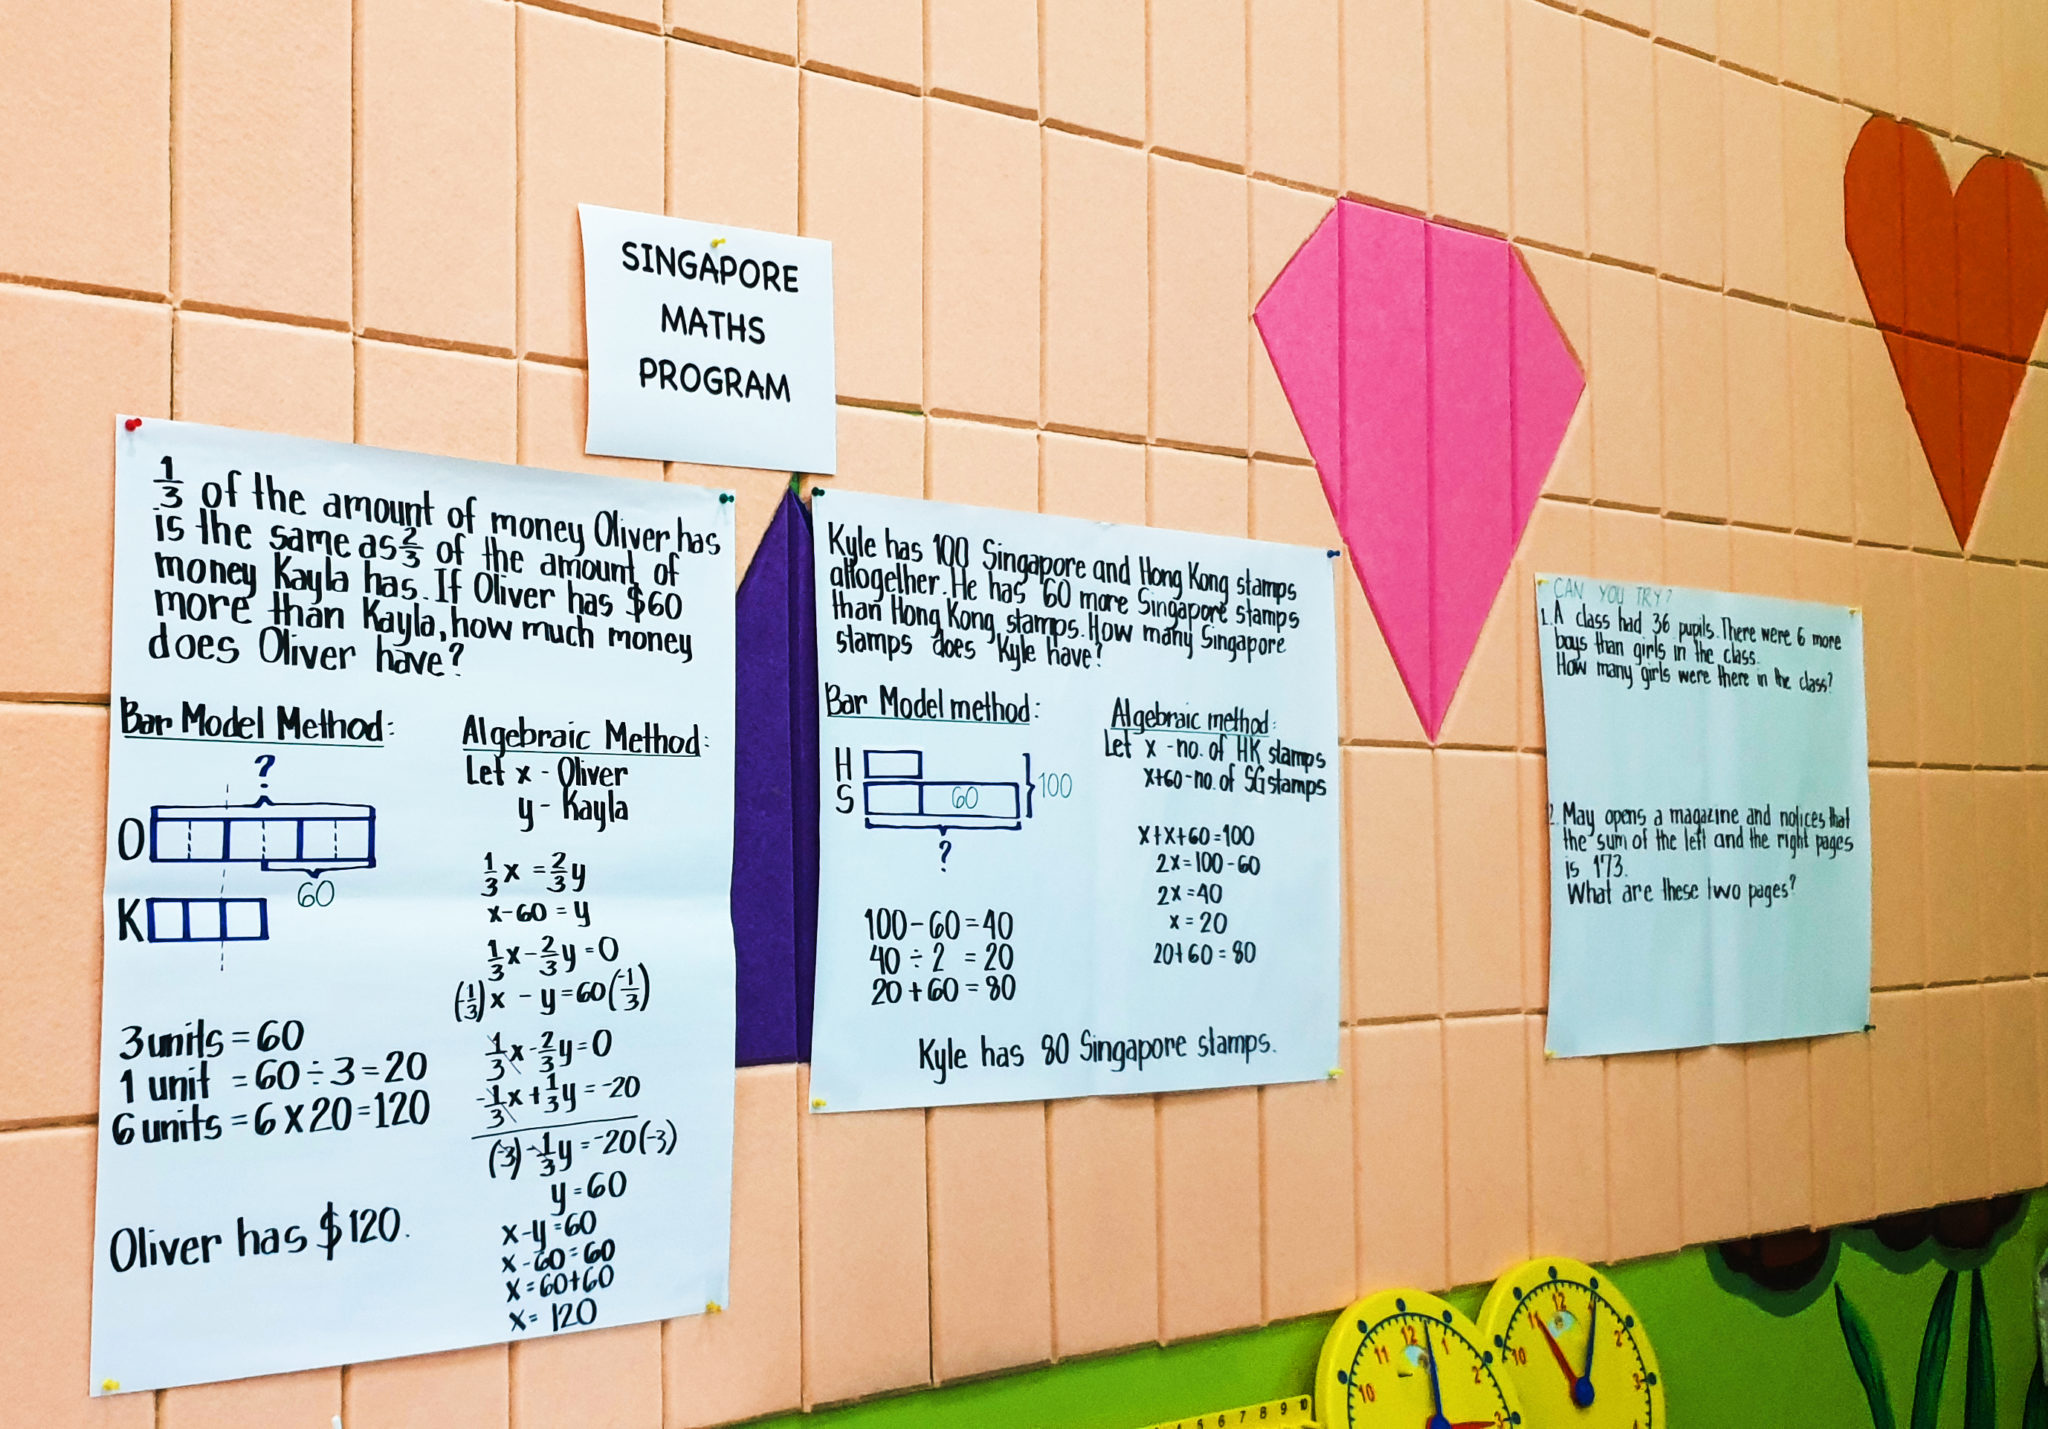 SINGAPORE
MATHS
PROGRAM
1/3 of the amount of money Oliver has
is the same as 2/3 of the amount of
money Kayla has. If Oliver has $60
more than Kayla, how much money
does Oliver have?
Bar Model Method:
?
O
60
K
3 units = 60
1 unit = 60 ÷ 3 = 20
6 units = 6 x 20 = 120
Oliver has $120.
Algebraic Method:
Let x - Oliver
y - Kayla
1/3 x = 2/3 y
x - 60 = y
1/3 x - 2/3 y = 0
(-1/3) x - y = 60 (-1/3)
1/3 x - 2/3 y = 0
-1/3 x + 1/3 y = -20
(-3) -1/3 y = -20 (-3)
y = 60
x - y = 60
x - 60 = 60
x = 60 + 60
x = 120
Kyle has 100 Singapore and Hong Kong stamps
altogether. He has 60 more Singapore stamps
than Hong Kong stamps. How many Singapore
stamps does Kyle have?
Bar Model method:
H
S
60
100
?
100 - 60 = 40
40 ÷ 2 = 20
20 + 60 = 80
Algebraic method:
Let x - no. of HK stamps
x+60 - no. of SG stamps
x+x+60 = 100
2x = 100 - 60
2x = 40
x = 20
20+60 = 80
Kyle has 80 Singapore stamps.
CAN YOU TRY?
1. A class had 36 pupils. There were 6 more
boys than girls in the class.
How many girls were there in the class?
2. May opens a magazine and notices that
the sum of the left and the right pages
is 173.
What are these two pages?
11 12 1
10 2
3
11 12
10 2
3
4
5 6 7 8 9 10